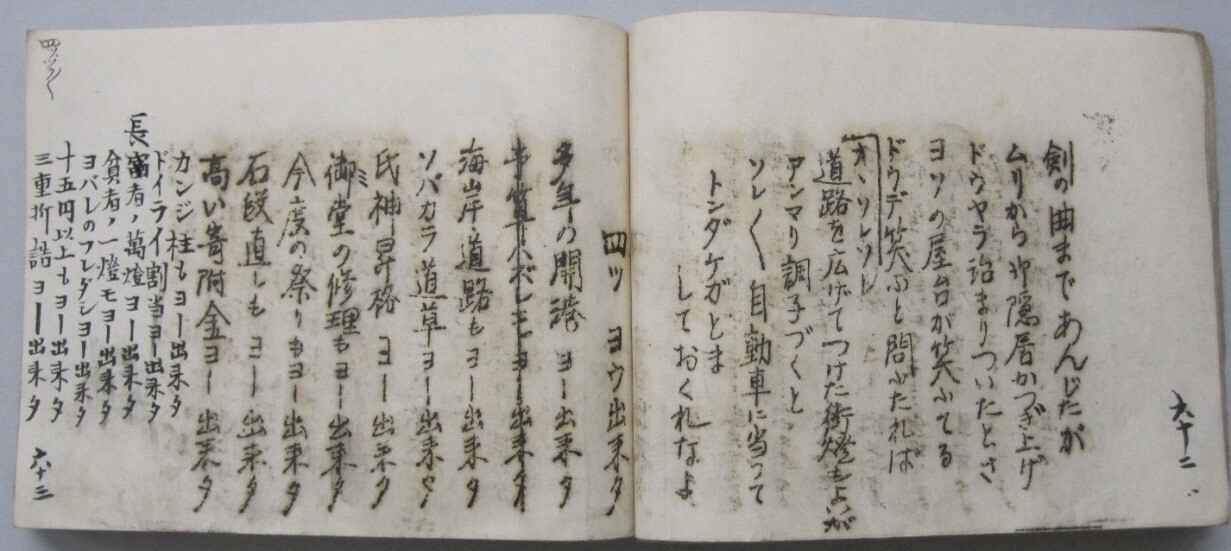 六十二
剣の曲まであんじたが
ムリから御隠居かつぎ上げ
ドウヤラ治まりついたとさ
ヨソの屋台が笑ふてる
ドウデ笑ふと問ふたれば
オヽソレソレ
道路を広げてつけた街燈もよいが
アンマリ調子づくと
ソレ〳〵自動車に当って
トンダケガとま
しておくれなよ
四ツ ヨウ出来タ
多年の開港ヨー出来タ
ヨー出来タ
海岸道路もヨー出来タ
ソバカラ道草ヨー出来タ
氏神昇格ヨー出来タ
御堂の修理もヨー出来タ
今度の祭りもヨー出来タ
石段直しもヨー出来タ
高い寄附金ヨー出来タ
カンジ柱もヨー出来タ
ドイライイ割当ヨー出来タ
長者ノ萬燈ヨー出来タ
貧者ノ一燈モヨー出来タ
ヨバレのフレダシヨー出来タ
十五円以上もヨー出来タ
三重折詰ヨー出来タ
六十三